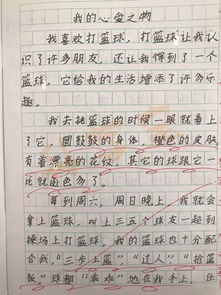 我的心爱之物
我喜欢打篮球，打篮球让我认
识了许多朋友，还让我得到了一个
篮球，它给我的生活增添了许多乐
趣。
我去挑篮球的时候一眼就看上
了它，圆鼓鼓的身体，橙色的皮肤
有着漂亮的花纹，其它的球跟它一
比就逊色多了。
每到周六、周日晚上，我就会
拿上篮球，叫上三五个球友一起到
操场上打篮球，我的篮球也十分配
合我，“三步上篮”，“过人”，“拾篮
板”球都“乖乖”地在我手上，任